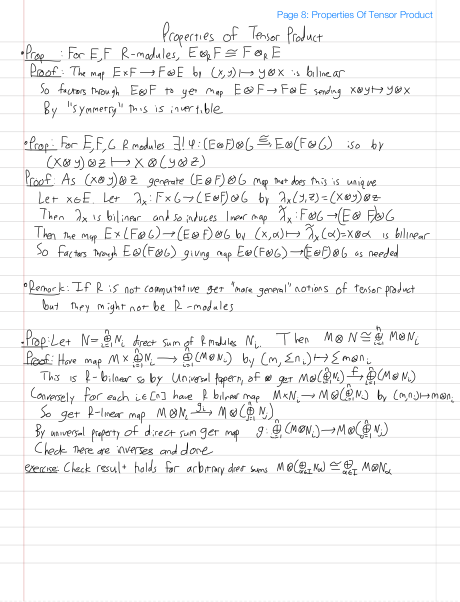 Page 8: Properties Of Tensor Product
Properties of Tensor Product
• Prop : For E,F R-modules, E⊗_R F ≅ F⊗_R E
Proof: The map E×F → F⊗E by (x,y) ↦ y⊗x is bilinear
So factors through E⊗F to get map E⊗F → F⊗E sending x⊗y ↦ y⊗x
By "symmetry" this is invertible
• Prop: For E,F,G R modules ∃! φ: (E⊗F)⊗G ≅→ E⊗(F⊗G) iso by
(x⊗y)⊗z ↦ x⊗(y⊗z)
Proof: As (x⊗y)⊗z generate (E⊗F)⊗G map that does this is unique
Let x∈E. Let λ_x: F×G → (E⊗F)⊗G by λ_x(y,z) = (x⊗y)⊗z
Then λ_x is bilinear and so induces linear map λ̃_x: F⊗G → (E⊗F)⊗G
Then the map E×(F⊗G) → (E⊗F)⊗G by (x,α) ↦ λ̃_x(α) = x⊗α is bilinear
So factors through E⊗(F⊗G) giving map E⊗(F⊗G) → (E⊗F)⊗G as needed
• Remark: If R is not commutative get "more general" notions of tensor product
but they might not be R-modules
• Prop: Let N = ⊕_{i=1}^n N_i direct sum of R modules N_i. Then M⊗N ≅ ⊕_{i=1}^n M⊗N_i
Proof: Have map M × ⊕_{i=1}^n N_i → ⊕_{i=1}^n (M⊗N_i) by (m, Σn_i) ↦ Σ m⊗n_i
This is R-bilinear so by Universal property of ⊗ get M⊗(⊕_{i=1}^n N_i) f→ ⊕_{i=1}^n (M⊗N_i)
Conversely for each i∈[n] have R bilinear map M×N_i → M⊗(⊕_{j=1}^n N_j) by (m,n_i) ↦ m⊗n_i
So get R-linear map M⊗N_i g_i→ M⊗(⊕_{j=1}^n N_j)
By universal property of direct sum get map g: ⊕_{i=1}^n (M⊗N_i) → M⊗(⊕_{j=1}^n N_j)
Check these are inverses and done
exercise: Check result holds for arbitrary direct sums M⊗(⊕_{α∈I} N_α) ≅ ⊕_{α∈I} M⊗N_α